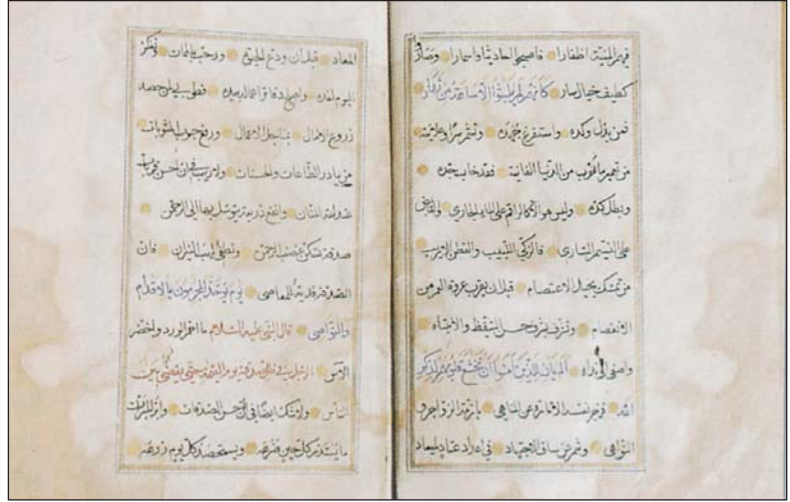 فيهم المنية اظفارا فاصبحوا احاديثا واسمارا وصاروا
كطيف خيال سار كأنهم لم يلبثوا الا ساعة من نهار
فمن بذل وكده واستفرغ جهده وتشمر سرا وعلانيته
من تعمير ما يقرب من الدنيا الفانية فقد خاب جده
وبطل كده وليس هو الا كالراقم على الماء الجاري والقابض
على النسيم الساري فالزكي اللبيب والفطن الاريب
من تمسك بحبل الاعتصام قبل ان يقرب عروة العمر من
الانفصام وتزود بزود حسن التيقظ والانتباه
واصغى الى نداء الم يأن للذين آمنوا ان تخشع قلوبهم لذكر
الله فزجر نفسه الامارة عن المناهي بازيد الزواجر و
النواهي وشمر عن ساق الاجتهاد في اعداد عتاد
المعاد قبل ان ودع الحيوة ورحب بالممات ونظر
اليوم لغده واصلح دفاتر اعماله بيده فطوبى لمن حصد
زروع الامال بمناجل الاعمال ورفع حبوب المثوبات
من بيادر الطاعات والحسنات ولا ريب في ان احسن قربات
عند الله المنان وانفع ذريعة يتوسل بها الى الرحمن
صدقة تسكن غضب الرحمن وتطفئ لهيب النيران فان
الصدقة فدية للمعاصي يوم يؤخذ المجرمون بالاقدام
والنواصي قال النبي عليه السلام ما احمر الورد واخضر
الآس الرجل في ظل صدقته يوم القيمة حتى يقضى بين
الناس ولا شك ايضا في ان احسن الصدقات وابر المبرات
ما يستدر كل حين ضرعه ويستحصد كل يوم زرعه